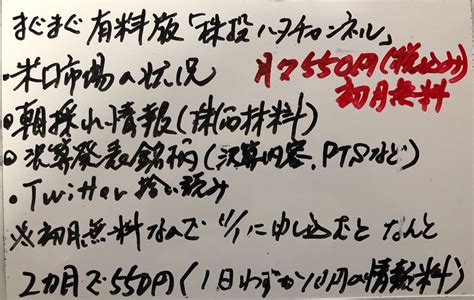 まぐまぐ有料版「株投ハックチャンネル」
月々550円(税込み)
初月無料
・米国市場の状況
・朝採れ情報(株価材料)
・決算発表銘柄(決算内容、PTSなど)
・Twitter拾い読み
※初月無料なので 11/1に申し込むと なんと
2カ月で550円(1日わずか10円の情報料)